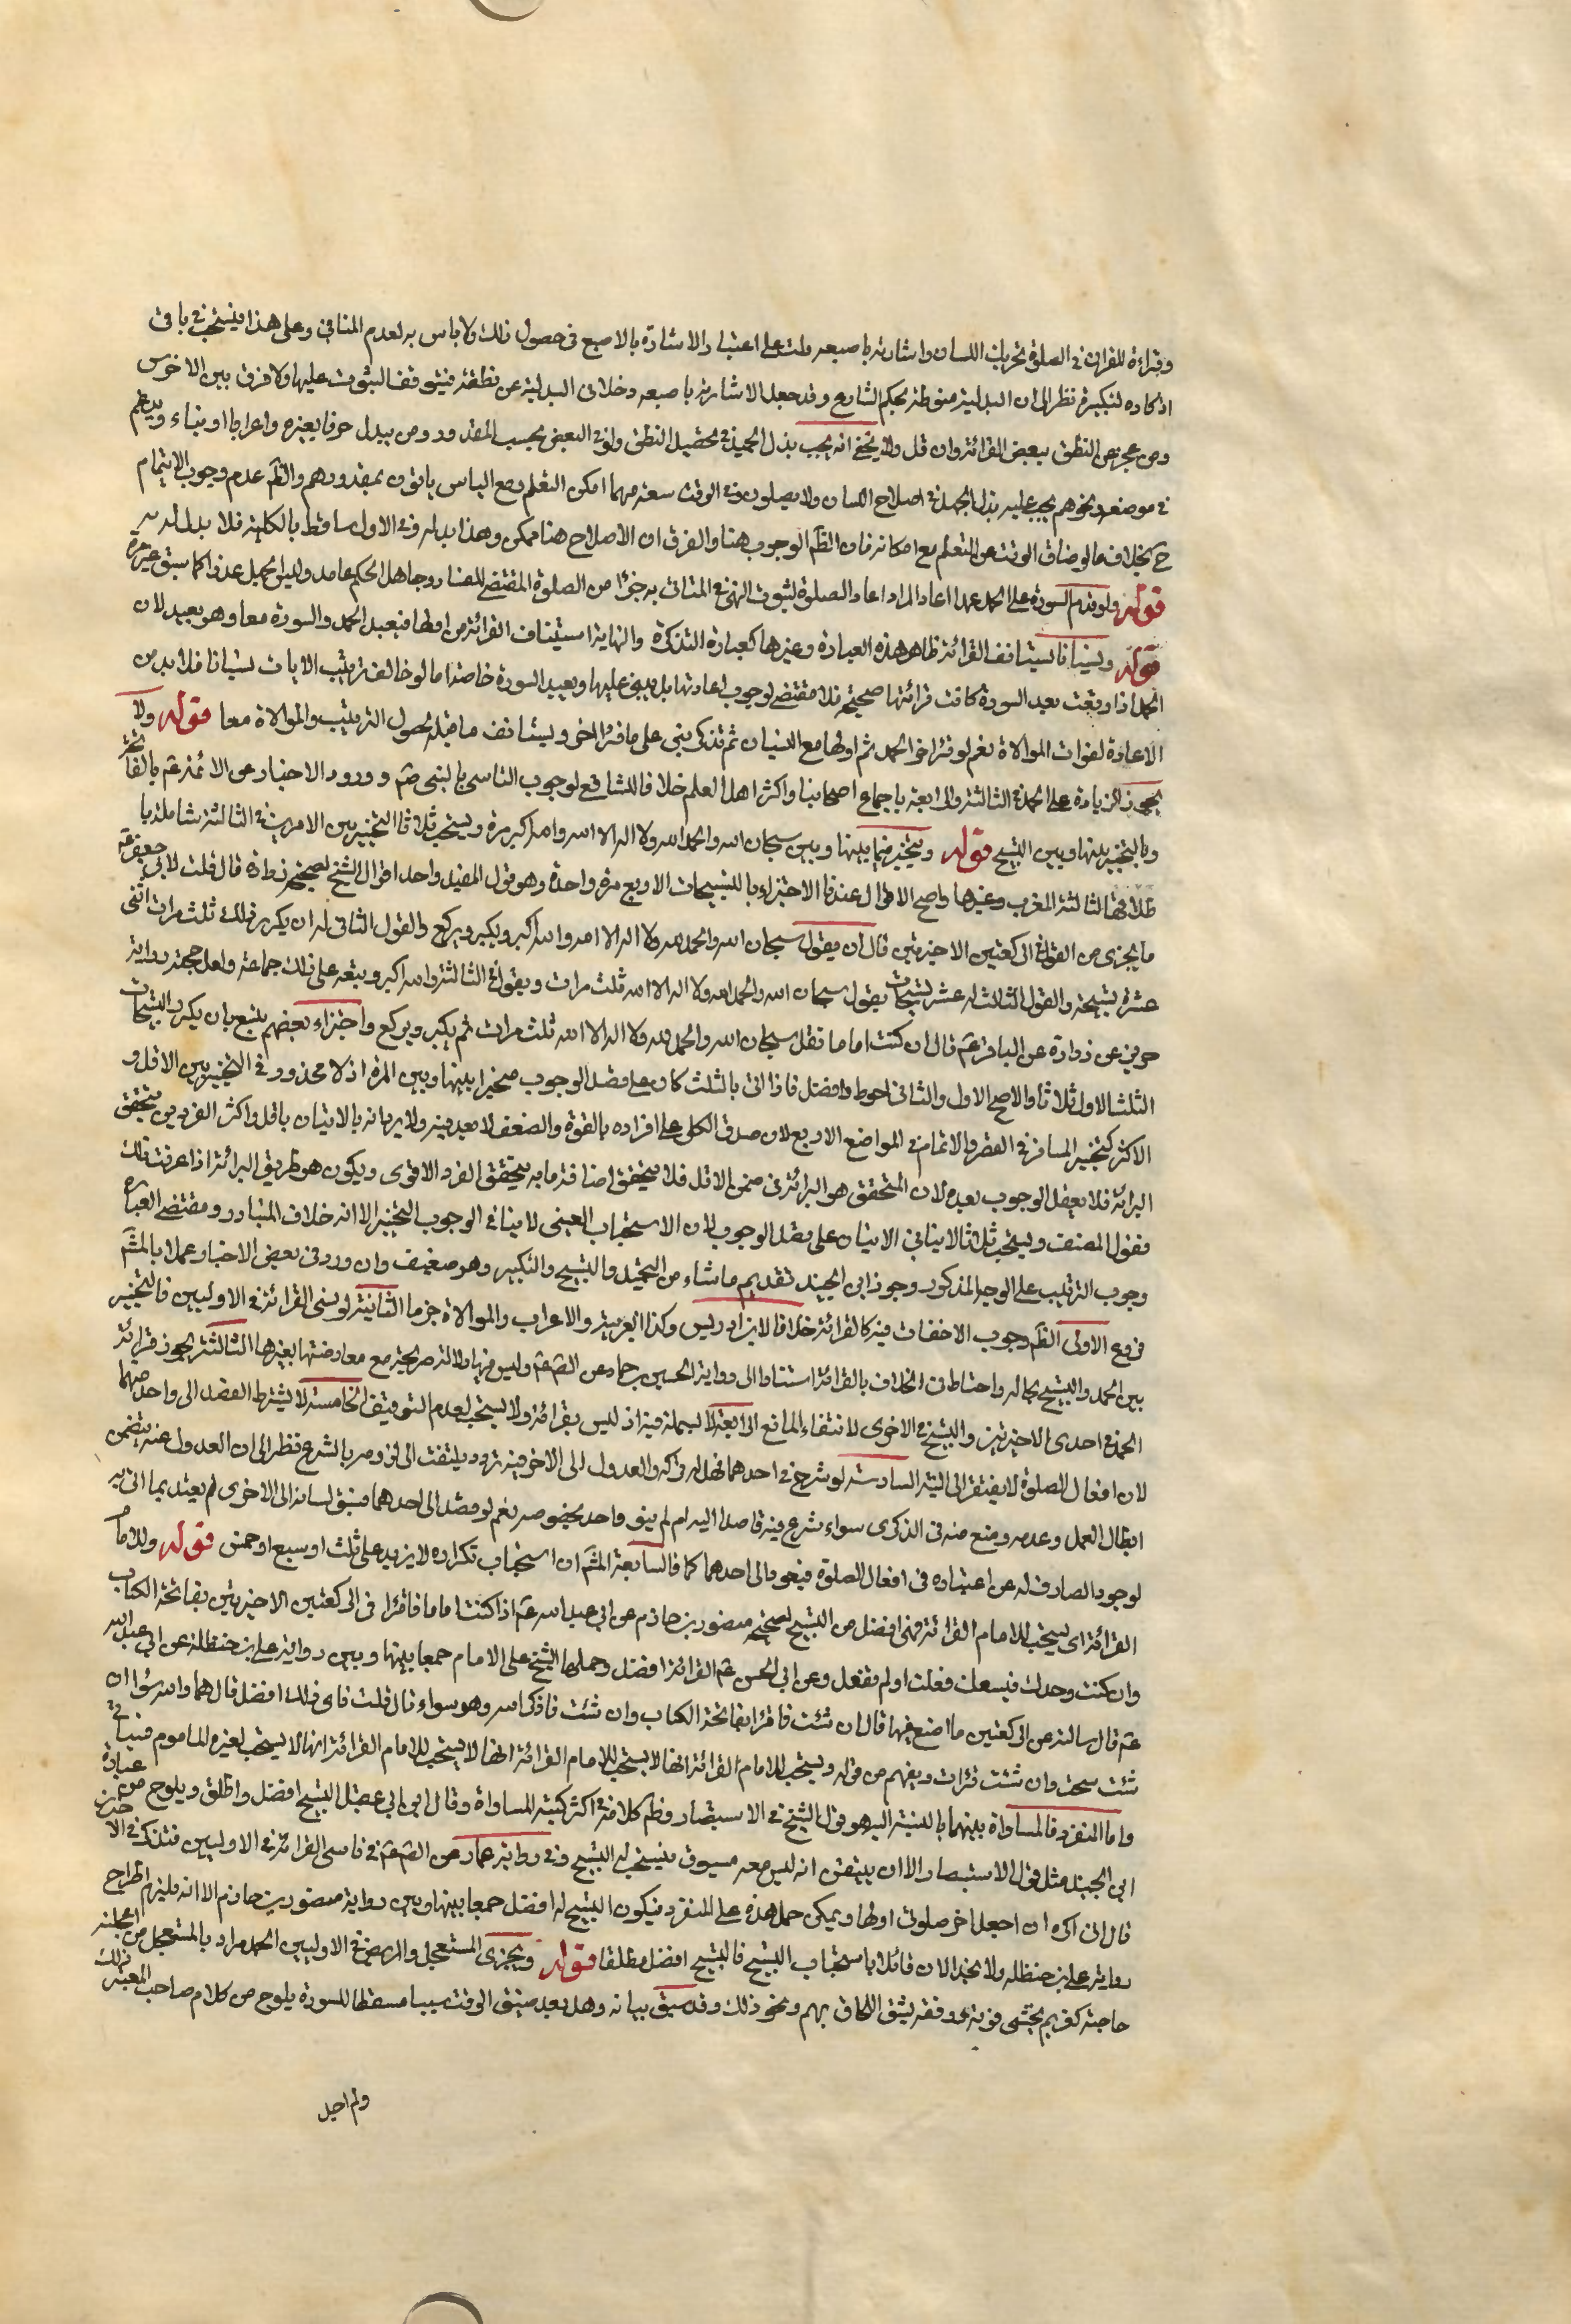 وقراءة للقران في الصلوة تحريك اللسان واشارته باصبعه قلت على اعتبار الاشارة بالاصبع في حصول ذلك ولا باس به لعدم المنافي وعلى هذا فيستحب في باقي
اذكاره لتكبيرة نظر الى ان البدلية منوطة بحكم الشارع وقد جعل الاشارة باصبعه دخلا في البدلية عن نطقه فيتوقف الثبوت عليها ولا فرق بين الاخرس
ومن عجز عن النطق ببعض القرائة وان قل ولا يخفى انه يجب بذل الجهد في تحصيل النطق ولو في البعض بحسب المقدور ومن يبدل حرفا بغيره واعرابا او بناء ويدغم
في موضعه ونحوهم يجب عليه بذل الجهد في اصلاح اللسان ولا يصلون وفي الوقت سعة مهما امكن التعلم ومع الياس ياتون بمقدورهم والظم عدم وجوب الايتمام
ح بخلاف ما لو ضاق الوقت عن التعلم مع امكانه فان الظم الوجوب هنا والفرق ان الاصلاح هنا ممكن وهذا بدله وفي الاول ساقط بالكلية فلا بدل له
قوله ولو قدم السورة على الحمد عمدا اعاد المراد اعاد الصلوة لثبوت النهي في الماتي به جزءا من الصلوة المقتضي للفساد وجاهل الحكم عامد وليس الجهل عذرا كما سبق غير مرة
قوله ونسيانا يستانف القرائة ظاهر هذه العبارة وغيرها كعبارة التذكرة والنهاية استيناف القرائة من اولها فيعيد الحمد والسورة معا وهو بعيد لان
الحمد اذا وقعت بعد السورة كانت قرائتها صحيحة فلا مقتضي لوجوب اعادتها بل يبني عليها ويعيد السورة خاصة اما لو خالف ترتيب الايات نسيانا فلا بد من
الاعادة لفوات الموالاة نعم لو قرا اخر الحمد ثم اولها مع النسيان ثم تذكر بنى على ما قرا اخرا ويستانف ما قبله لحصول الترتيب والموالاة معا قوله ولا
يجوز الزيادة على الحمد في الثالثة والرابعة باجماع اصحابنا واكثر اهل العلم خلافا للشافعي لوجوب التاسي بالنبي صم وورود الاخبار عن الائمة عم بالفاتحة
وبالتخيير بينها وبين التسبيح قوله ويتخير فيما بينها وبين سبحان الله والحمد لله ولا اله الا الله والله اكبر مرة ويستحب ثلاثا التخيير بين الامرين في الثالثة شامل
طلاقها لثالثة المغرب وغيرها واصح الاقوال عندنا الاجتزاء بالتسبيحات الاربع مرة واحدة وهو قول المفيد واحد اقوال الشيخ لصحيحة زرارة قال قلت لابي جعفر عم
ما يجزي من القول في الركعتين الاخيرتين قال ان يقول سبحان الله والحمد لله ولا اله الا الله والله اكبر ويكبر ويركع والقول الثاني له ان يكرر ذلك ثلث مرات اثني
عشرة تسبيحة والقول الثالث له عشر تسبيحات يقول سبحان الله والحمد لله ولا اله الا الله ثلث مرات ويقول في الثالثة والله اكبر وتبعه على ذلك جماعة ولعل حجته رواية
حريز عن زرارة عن الباقر عم قال ان كنت اماما فقل سبحان الله والحمد لله ولا اله الا الله ثلث مرات ثم يكبر ويركع واجتزاء بعضهم بتسع بان يكرر التسبيحات
الثلث الاول ثلاثا والاصح الاول والثاني احوط وافضل فاذا اتى بالثلث كان على قصد الوجوب مخيرا بينها وبين المرة اذ لا محذور في التخيير بين الاقل و
الاكثر كتخيير المسافر في القصر والاتمام في المواضع الاربع لان صدق الكلي على افراده بالقوة والضعف لا بعد فيه ولا يرد انه بالاتيان باقل واكثر الفردين تتحقق
البرائة فلا يعقل الوجوب بعده لان المتحقق هو البرائة في ضمن الاقل فلا يتحقق اضافة ما به يتحقق الفرد الاقوى ويكون هو طريق البرائة اذا عرفت ذلك
فقول المصنف ويستحب ثلاثا لا ينافي الاتيان على قصد الوجوب لان الاستحباب العيني لا ينافي الوجوب التخييري الا انه خلاف المتبادر ومقتضى العبارة
وجوب الترتيب على الوجه المذكور وجوز ابن الجنيد تقديم ما شاء من التحميد والتسبيح والتكبير وهو ضعيف وان ورد في بعض الاخبار عملا بالمشهم
فروع الاولى الظم وجوب الاخفات فيه كالقرائة خلافا لابن ادريس وكذا العربية والاعراب والموالاة جزما الثانية لو نسي القرائة في الاوليين فالتخيير
بين الحمد والتسبيح بحاله واحتاط في الخلاف بالقرائة استنادا الى رواية الحسين بن حماد عن الصم عم وليس فيها دلالة صريحة مع معارضتها بغيرها الثالثة يجوز قرائة
الحمد في احدى الاخيرتين والتسبيح في الاخرى لانتفاء المانع الرابعة لا بسملة فيه اذ ليس بقرائة ولا يستحب لعدم التوقيف الخامسة لا يشترط القصد الى واحد منهما
لان افعال الصلوة لا يفتقر الى النية السادسة لو شرع في احدهما فهل له تركه والعدول الى الاخر فيه تردد يلتفت الى لزومه بالشروع نظر الى ان العدول عنه يتضمن
ابطال العمل وعدمه ومنع منه في الذكرى سواء شرع فيه قاصدا اليه ام لم ينو واحد بخصوصه نعم لو قصد الى احدهما فسبق لسانه الى الاخرى لم يعتد بما اتى به
لوجود الصارف له عن اعتباره في افعال الصلوة فيعود الى احدهما كما قال السابعة المشهم ان استحباب تكراره لا يزيد على ثلث او سبع او خمس قوله وللامام
القرائة اي يستحب للامام القرائة فهي افضل من التسبيح لصحيحة منصور بن حازم عن ابي عبد الله عم اذا كنت اماما فاقرا في الركعتين الاخيرتين بفاتحة الكتاب
وان كنت وحدك فيسعك فعلت او لم تفعل وعن ابي الحسن عم القرائة افضل وحملها الشيخ على الامام جمعا بينها وبين رواية علي بن حنظلة عن ابي عبد الله
عم قال سالته عن الركعتين ما اصنع فيها قال ان شئت فاقرا بفاتحة الكتاب وان شئت فاذكر الله وهو سواء قال قلت فاي ذلك افضل قال هما والله سواء ان
شئت سبحت وان شئت قرات ويفهم من قوله ويستحب للامام القرائة انها لا يستحب للامام القرائة انها لا يستحب للامام القرائة انها لا يستحب لغيره للماموم فتباح في
واما المنفرد فالمساواة بينهما بالنسبة اليه هو قول الشيخ في الاستبصار وظم كلامه في اكثر كتبه المساواة وقال ابن ابي عقيل التسبيح افضل واطلق ويلوح من عبارة
ابن الجنيد مثل قول الاستبصار الا ان يتيقن انه ليس معه مسبوق فيستحب له التسبيح وفي رواية عمار عن الصم عم في ناسي القرائة في الاوليين فتذكر في الاخيرتين
قال اني اكره ان اجعل اخر صلوتي اولها ويمكن حمل هذه على المنفرد فيكون التسبيح له افضل جمعا بينها وبين رواية منصور بن حازم الا انه يلزم اطراح
رواية علي بن حنظله ولا نجد الان قائلا باستحباب التسبيح فالتسبيح افضل مطلقا قوله ويجزي المستعجل والمريض في الاوليين الحمد مراد بالمستعجل من اعجلته
حاجته كغريم يخشى فوته ورفقة يشق اللحاق بهم ونحو ذلك وقد سبق بيانه وهل يعد ضيق الوقت سببا مسقطا للسورة يلوح من كلام صاحب المعتبر ذلك
ولم اجد